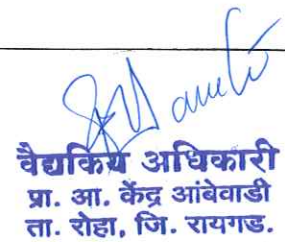 वैद्यकिय अधिकारी
प्रा. आ. केंद्र आंबेवाडी
ता. रोहा, जि. रायगड.